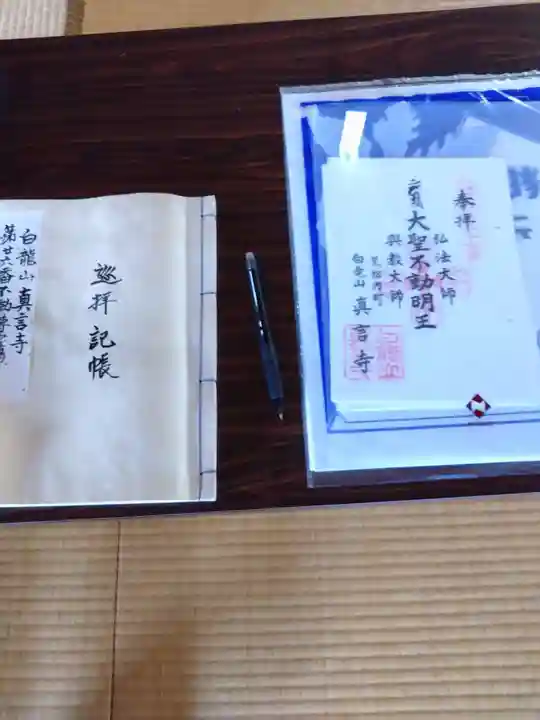 巡拝記帳
白龍山 真言寺
第廿六番不動尊霊場
奉拝
弘法大師
大聖不動明王
興教大師
黒松内町
白竜山 真言寺